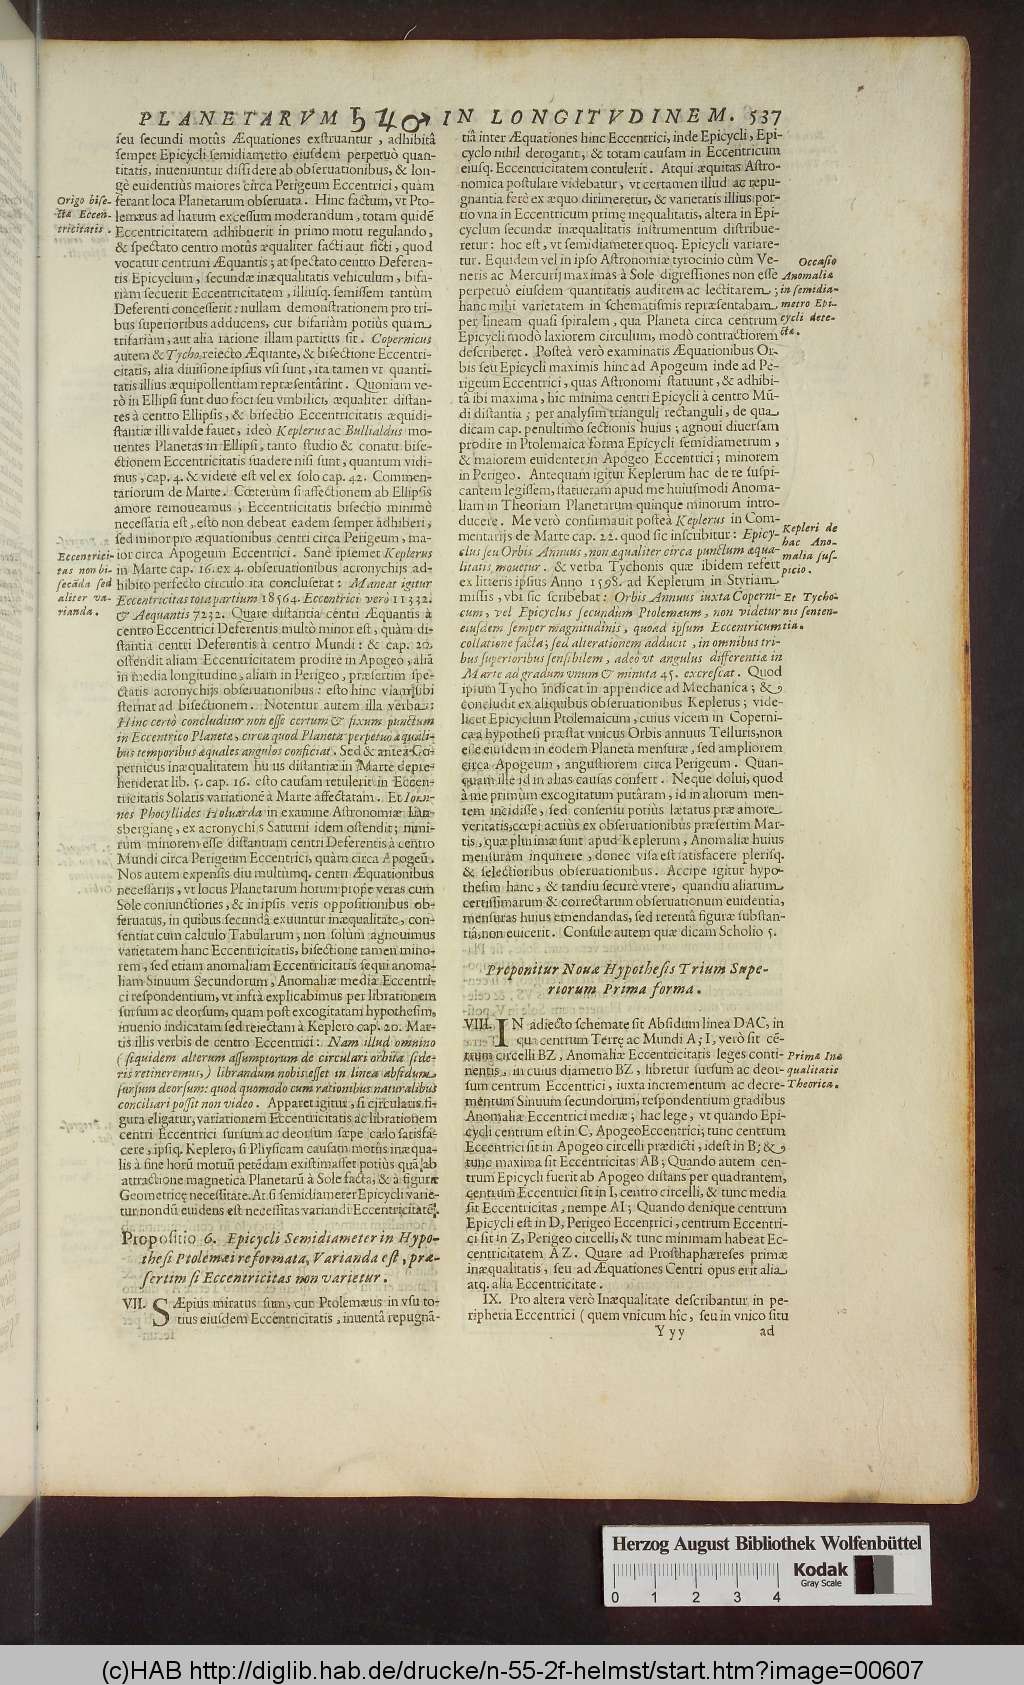 PLANETARVM ♄ ♃ ♂ IN LONGITVDINEM. 537
seu secundi motûs Æquationes exstruantur, adhibitâ
semper Epicycli semidiametro eiusdem perpetuò quan-
titatis, inueniuntur dissidere ab obseruationibus, & lon-
gè euidentiùs maiores circa Perigeum Eccentrici, quàm
ferant loca Planetarum obseruata. Hinc factum, vt Pto-
lemæus ad harum excessum moderandum, totam quidẽ
Eccentricitatem adhibuerit in primo motu regulando,
& spectato centro motûs æqualiter facti aut ficti, quod
vocatur centrum Æquantis; at spectato centro Deferen-
tis Epicyclum, secundæ inæqualitatis vehiculum, bifa-
riàm secuerit Eccentricitatem, illiusq. semissem tantùm
Deferenti concesserit: nullam demonstrationem pro tri-
bus superioribus adducens, cur bifariàm potiùs quam
trifariàm, aut alia ratione illam partitus sit. Copernicus
autem & Tycho reiecto Æquante, & bisectione Eccentri-
citatis, alia diuisione ipsius vsi sunt, ita tamen vt quanti-
tatis illius æquipollentiam repræsentârint. Quoniam ve-
rò in Ellipsi sunt duo foci seu vmbilici, æqualiter distan-
tes à centro Ellipsis, & bisectio Eccentricitatis æquidi-
stantiæ illi valde fauet, ideò Keplerus ac Bullialdus mo-
uentes Planetas in Ellipsi, tanto studio & conatu bise-
ctionem Eccentricitatis suadere nisi sunt, quantum vidi-
mus, cap. 4. & videre est vel ex solo cap. 42. Commen-
tariorum de Marte. Cœterùm si affectionem ab Ellipsis
amore remoueamus, Eccentricitatis bisectio minimè
necessaria est, esto non debeat eadem semper adhiberi,
sed minor pro æquationibus centri circa Perigeum, ma-
ior circa Apogeum Eccentrici. Sanè ipsemet Keplerus
in Marte cap. 16. ex 4. obseruationibus acronychijs ad-
hibito perfecto circulo ita concluserat: Maneat igitur
Eccentricitas tota partium 18564. Eccentrici verò 11332.
& Aequantis 7232. Quare distantia centri Æquantis à
centro Eccentrici Deferentis multò minor est, quàm di-
stantia centri Deferentis à centro Mundi: & cap. 20.
ostendit aliam Eccentricitatem prodire in Apogeo, aliã
in media longitudine, aliam in Perigeo, præsertim spe-
ctatis acronychijs obseruationibus: esto hinc viam sibi
sternat ad bisectionem. Notentur autem illa verba:
Hinc certò concluditur non esse certum & fixum punctum
in Eccentrico Planetæ, circa quod Planeta perpetuò æquali-
bus temporibus æquales angulos conficiat. Sed & antea Co-
pernicus inæqualitatem huius distantiæ in Marte depre-
henderat lib. 5. cap. 16. esto causam retulerit in Eccen-
tricitatis Solaris variationẽ à Marte affectatam. Et Ioan-
nes Phocyllides Holuarda in examine Astronomiæ Lans-
bergianę, ex acronychijs Saturni idem ostendit; nimi-
rùm minorem esse distantiam centri Deferentis à centro
Mundi circa Perigeum Eccentrici, quàm circa Apogeũ.
Nos autem expensis diu multùmq. centri Æquationibus
necessarijs, vt locus Planetarum horum propè veras cum
Sole coniunctiones, & in ipsis veris oppositionibus ob-
seruatus, in quibus secundâ exuuntur inæqualitate, con-
sentiat cum calculo Tabularum, non solùm agnouimus
varietatem hanc Eccentricitatis, bisectione tamen mino-
rem, sed etiam anomaliam Eccentricitatis sequi anoma-
liam Sinuum Secundorum, Anomaliæ media Eccentri-
ci respondentium, vt infrà explicabimus per librationem
sursum ac deorsum, quam post excogitatam hypothesim,
inuenio indicatam sed reiectam à Keplero cap. 20. Mar-
tis illis verbis de centro Eccentrici: Nam illud omnino
(siquidem alterum assumptorum de circulari orbita side-
ris retineremus,) librandum nobis esset in linea absidum
sursum deorsum: quod quomodo cum rationibus naturalibus
conciliari possit non video. Apparet igitur, si circularis fi-
gura eligatur, variationem Eccentricitatis ac librationem
centri Eccentrici sursum ac deorsum sæpe cælo satisfa-
cere, ipsiq. Keplero, si Physicam causam motûs inæqua-
lis à fine horũ motuũ petẽdam existimasset potiùs quã ab
attractione magnetica Planetarũ à Sole facta, & à figuræ
Geometricę necessitate. At si semidiameter Epicycli varie-
tur nondũ euidens est necessitas variandi Eccentricitatẽ.
Propositio 6. Epicycli Semidiameter in Hypo-
thesi Ptolemæi reformata, Varianda est, præ-
sertim si Eccentricitas non varietur.
VII. SÆpius miratus sum, cur Ptolemæus in vsu to-
tius eiusdem Eccentricitatis, inuentâ repugnã-
Origo bise-
ctæ Eccen-
tricitatis.
Eccentrici-
tas non bi-
secãda sed
aliter va-
rianda.
tiâ inter Æquationes hinc Eccentrici, inde Epicycli, Epi-
cyclo nihil derogarit, & totam causam in Eccentricum
eiusq. Eccentricitatem contulerit. Atqui æquitas Astro-
nomica postulare videbatur, vt certamen illud ac repu-
gnantia ferè ex æquo dirimeretur, & varietatis illius por-
tio vna in Eccentricum primę inęqualitatis, altera in Epi-
cyclum secundæ inæqualitatis instrumentum distribue-
retur: hoc est, vt semidiameter quoq. Epicycli variare-
tur. Equidem vel in ipso Astronomiæ tyrocinio cùm Ve-
neris ac Mercurij maximas à Sole digressiones non esse
perpetuò eiusdem quantitatis audirem ac lectitarem;
hanc mihi varietatem in schematismis repræsentabam
per lineam quasi spiralem, qua Planeta circa centrum
Epicycli modò laxiorem circulum, modò contractiorem
describeret. Posteà verò examinatis Æquationibus Or-
bis seu Epicycli maximis hinc ad Apogeum inde ad Pe-
rigeum Eccentrici, quas Astronomi statuunt, & adhibi-
tâ ibi maxima, hic minima centri Epicycli à centro Mũ-
di distantia; per analysim trianguli rectanguli, de qua
dicam cap. penultimo sectionis huius; agnoui diuersam
prodire in Ptolemaica forma Epicycli semidiametrum,
& maiorem euidenter in Apogeo Eccentrici; minorem
in Perigeo. Antequam igitur Keplerum hac de re suspi-
cantem legissem, statueram apud me huiusmodi Anoma-
liam in Theoriam Planetarum quinque minorum intro-
ducere. Me verò confirmauit posteà Keplerus in Com-
mentarijs de Marte cap. 22. quod sic inscribitur: Epicy-
clus seu Orbis Annuus, non æqualiter circa punctum æqua-
litatis mouetur. & verba Tychonis quæ ibidem refert
ex litteris ipsius Anno 1598. ad Keplerum in Styriam
missis, vbi sic scribebat: Orbis Annuus iuxta Coperni-
cum, vel Epicyclus secundum Ptolemæum, non videtur
eiusdem semper magnitudinis, quoad ipsum Eccentricum
collatione facta; sed alterationem adducit, in omnibus tri-
bus superioribus sensibilem, adeò vt angulus differentiæ in
Marte ad gradum vnum & minuta 45. excrescat. Quod
ipsum Tycho indicat in appendice ad Mechanica; &
concludit ex aliquibus obseruationibus Keplerus; vide-
licet Epicyclum Ptolemaicum, cuius vicem in Coperni-
cæa hypothesi præstat vnicus Orbis annuus Telluris, non
esse eiusdem in eodem Planeta mensuræ, sed ampliorem
circa Apogeum, angustiorem circa Perigeum. Quan-
quam ille id in alias causas confert. Neque dolui, quod
à me primùm excogitatum putâram, id in aliorum men-
tem incidisse, sed consensu potiùs lætatus præ amore
veritatis, cœpi actiùs ex obseruationibus præsertim Mar-
tis, quæ plurimæ sunt apud Keplerum, Anomaliæ huius
mensuram inquirere, donec visa est satisfacere plerisq.
& selectioribus obseruationibus. Accipe igitur hypo-
thesim hanc, & tandiu securè vtere, quandiu aliarum
certissimarum & correctarum obseruationum euidentia,
mensuras huius emendandas, sed retentâ figuræ substan-
tiâ, non euicerit. Consule autem quæ dicam Scholio 5.
Proponitur Noua Hypothesis Trium Supe-
riorum Prima forma.
VIII. IN adiecto schemate sit Absidum linea DAC, in
qua centrum Terrę ac Mundi A; I, verò sit cẽ-
trum circelli BZ, Anomaliæ Eccentricitatis leges conti-
nentis, in cuius diametro BZ, libretur sursum ac deor-
sum centrum Eccentrici, iuxta incrementum ac decre-
mentum Sinuum secundorum, respondentium gradibus
Anomaliæ Eccentrici mediæ; hac lege, vt quando Epi-
cycli centrum est in C, Apogeo Eccentrici; tunc centrum
Eccentrici sit in Apogeo circelli prædicti, idest in B; &
tunc maxima sit Eccentricitas AB; Quando autem cen-
trum Epicycli fuerit ab Apogeo distans per quadrantem,
centrum Eccentrici sit in I, centro circelli, & tunc media
sit Eccentricitas, nempe AI; Quando denique centrum
Epicycli est in D, Perigeo Eccentrici, centrum Eccentri-
ci sit in Z, Perigeo circelli, & tunc minimam habeat Ec-
centricitatem AZ. Quare ad Prosthaphæreses primæ
inæqualitatis, seu ad Æquationes Centri opus erit alia
atq. alia Eccentricitate.
IX. Pro altera verò Inæqualitate describantur in pe-
ripheria Eccentrici (quem vnicum hîc, seu in vnico situ
Yyy ad
Occasio
Anomaliæ
in semidia-
metro Epi-
cycli dete-
ctæ.
Kepleri de
hac Ano-
malia sus-
picio.
Et Tycho-
nis senten-
tia.
Prima Inæ
qualitatis
Theorica.
Herzog August Bibliothek Wolfenbüttel
Kodak
Gray Scale
0 1 2 3 4
(c)HAB http://diglib.hab.de/drucke/n-55-2f-helmst/start.htm?image=00607